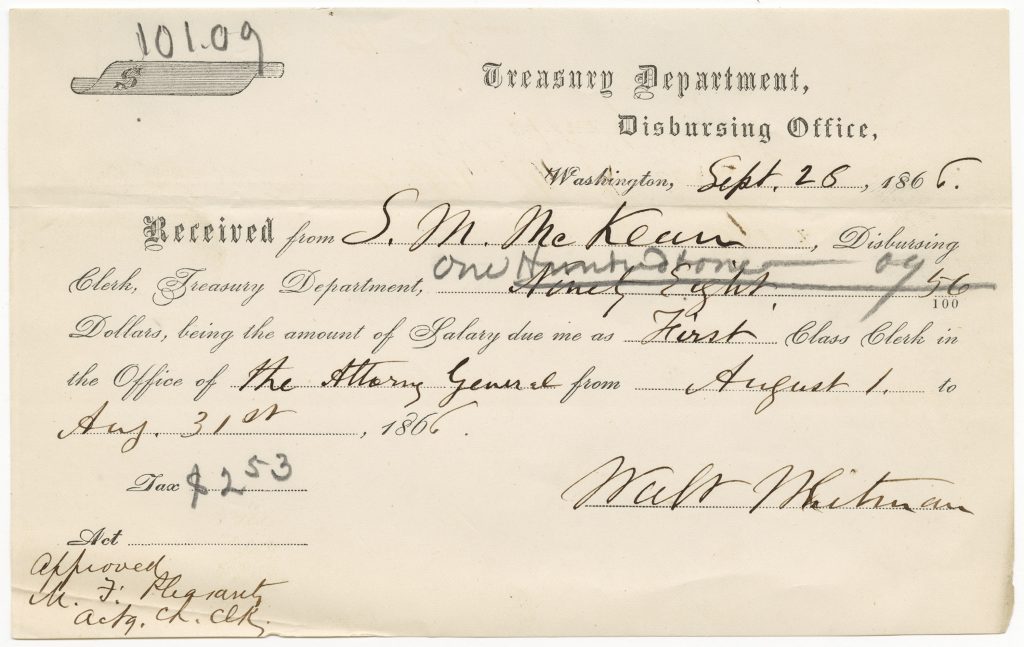 101.09
$
Treasury Department,
Disbursing Office,
Washington, Sept. 26, 1866.
Received from S. M. McKean, Disbursing
One Hundred & one 09
Clerk, Treasury Department, Ninety Eight, 56/100
Dollars, being the amount of Salary due me as First Class Clerk in
the Office of the Attorny General from August 1. to
Aug. 31st, 1866.
Tax $2 53
Walt Whitman
Act
Approved
M. F. Pleasants
Actg. Ch. Clk.